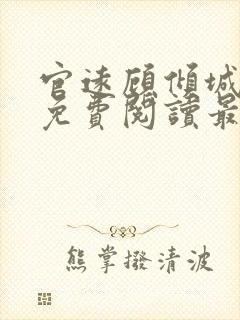 官途顾倾城
免費閱讀最
熊掌撥清波